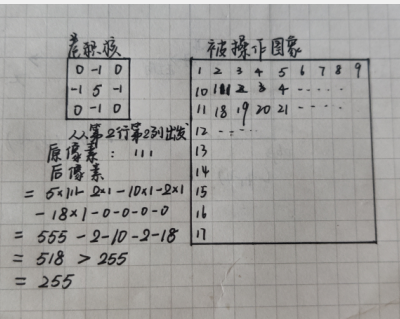 卷积核
0 -1 0
-1 5 -1
0 -1 0
从第2行第2列出发
原像素: 111
后像素
= 5×111 - 2×1 - 10×1 - 2×1
- 18×1 - 0 - 0 - 0 - 0
= 555 - 2 - 10 - 2 - 18
= 518 > 255
= 255
被操作图象
1 2 3 4 5 6 7 8 9
10 111 2 3 4 - - - - -
11 18 19 20 21 - - - - -
12 - - - - -
13
14
15
16
17